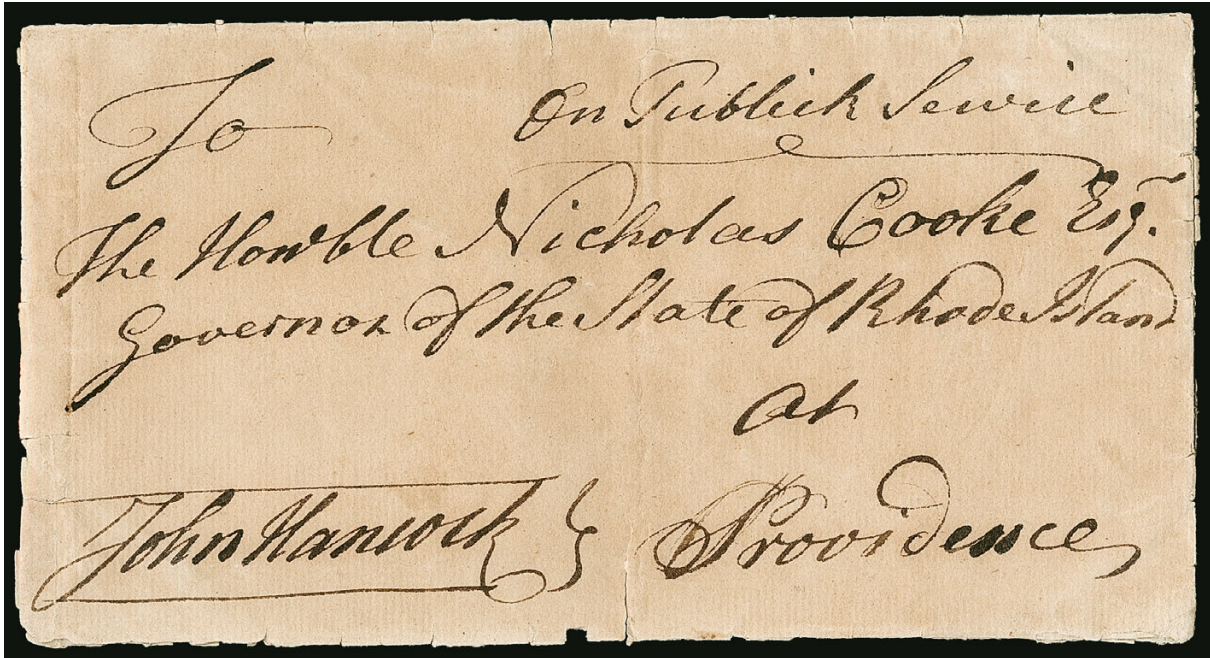 To On Publick Service
The Honble Nicholas Cooke Esqr.
Governor of the State of Rhode Island
at
John Hancock Providence